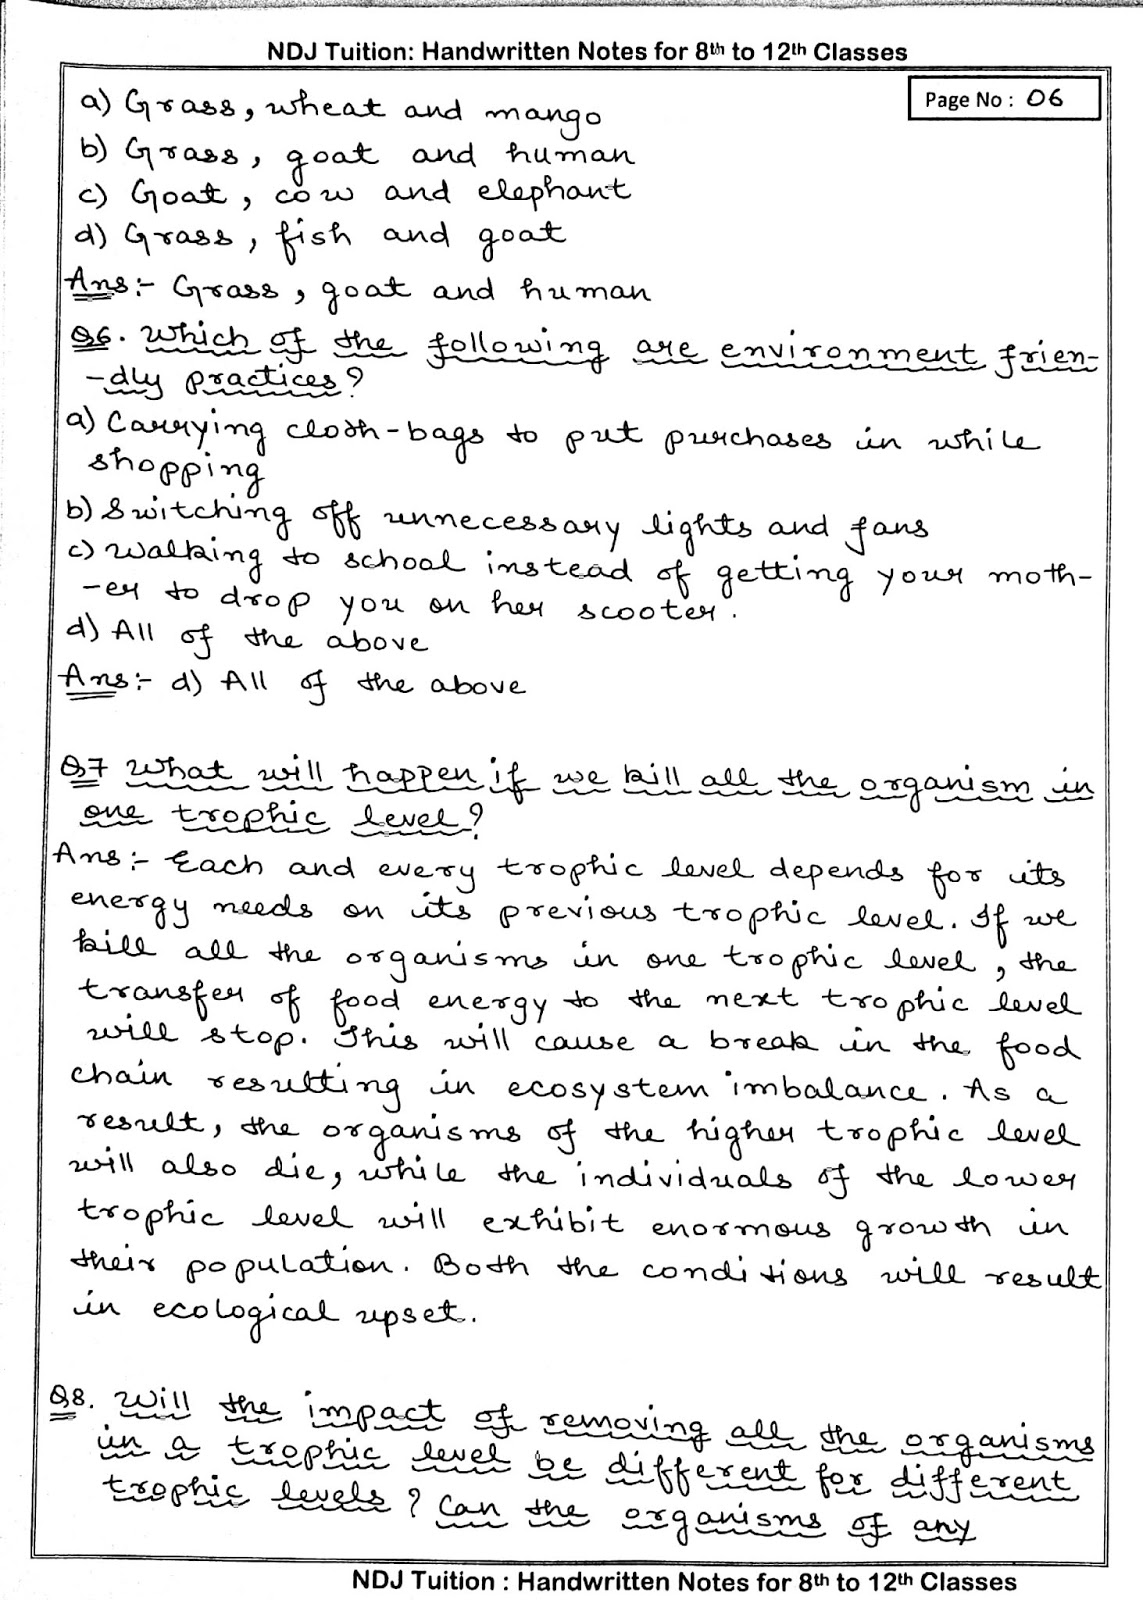 NDJ Tuition: Handwritten Notes for 8th to 12th Classes
Page No : 06
a) Grass, wheat and mango
b) Grass, goat and human
c) Goat, cow and elephant
d) Grass, fish and goat
Ans:- Grass, goat and human
Q6. Which of the following are environment frien-
-dly practices?
a) Carrying cloth-bags to put purchases in while
shopping
b) Switching off unnecessary lights and fans
c) Walking to school instead of getting your moth-
-er to drop you on her scooter.
d) All of the above
Ans:- d) All of the above
Q7 What will happen if we kill all the organism in
one trophic level?
Ans:- Each and every trophic level depends for its
energy needs on its previous trophic level. If we
kill all the organisms in one trophic level, the
transfer of food energy to the next trophic level
will stop. This will cause a break in the food
chain resulting in ecosystem imbalance. As a
result, the organisms of the higher trophic level
will also die, while the individuals of the lower
trophic level will exhibit enormous growth in
their population. Both the conditions will result
in ecological upset.
Q8. Will the impact of removing all the organisms
in a trophic level be different for different
trophic levels? Can the organisms of any
NDJ Tuition : Handwritten Notes for 8th to 12th Classes